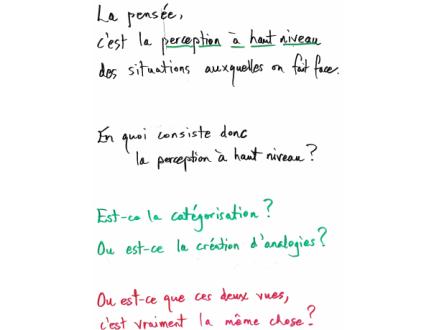 La pensée,
c'est la perception à haut niveau
des situations auxquelles on fait face.
En quoi consiste donc
la perception à haut niveau ?
Est-ce la catégorisation ?
Ou est-ce la création d'analogies ?
Ou est-ce que ces deux vues,
c'est vraiment la même chose ?